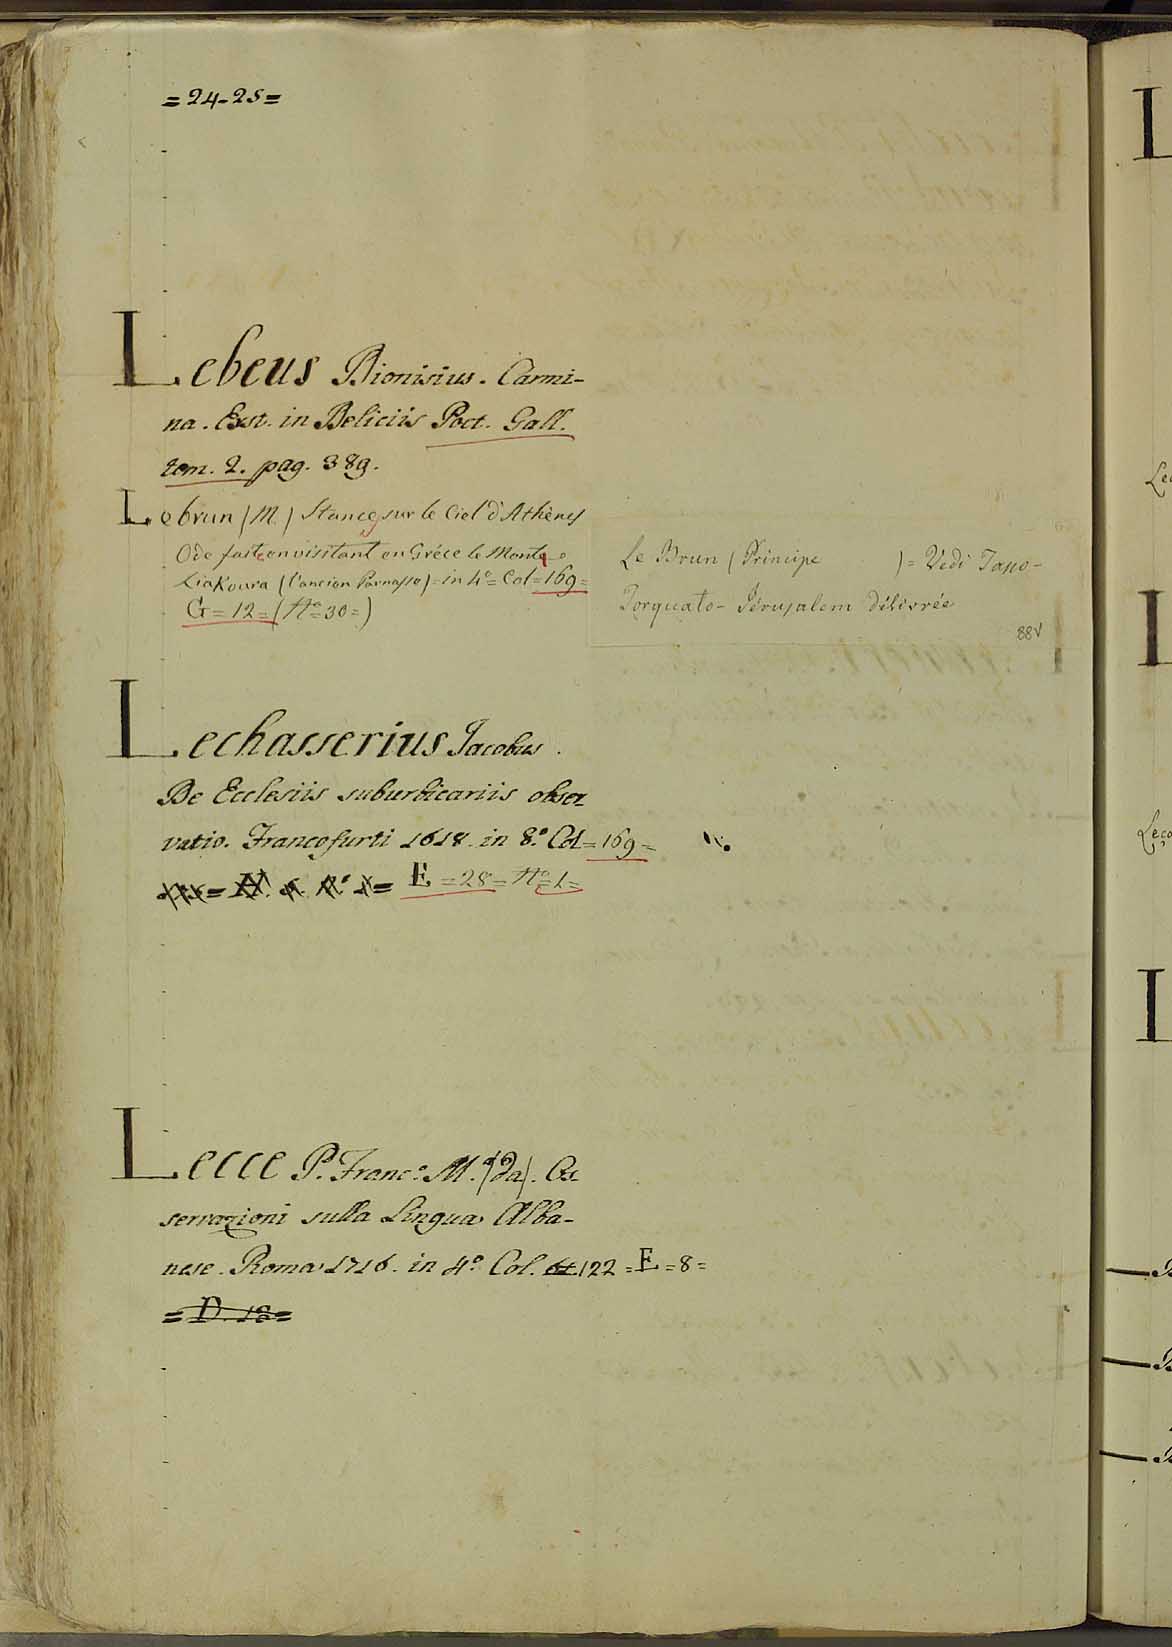 = 24-25 =
Lebeus Dionisius. Carmi-
na. Exst. in Deliciis Poet. Gall.
tom. 2. pag. 389.
Lebrun (M.) Stances sur le Ciel d'Athènes
Ode faite en visitant en Gréce le Monte
Liakoura (l'ancien Parnasse) = in 4.º = Col = 169 =
G = 12 = (Nº = 30 =)
Le Brun (Principe ) = Vedi Tasso -
Torquato - Jérusalem délivrée
88v
Lechasserius Jacobus.
De Ecclesiis suburbicariis obser
vatio. Francofurti 1618. in 8.º Col = 169 =
E = 28 = Nº = 1 =
Lecce P. Franc.º M.ª (da). Os-
servazioni sulla Lingua Alba-
nese. Roma 1716. in 4.º Col. 122 = E = 8 =
= D. 18 =